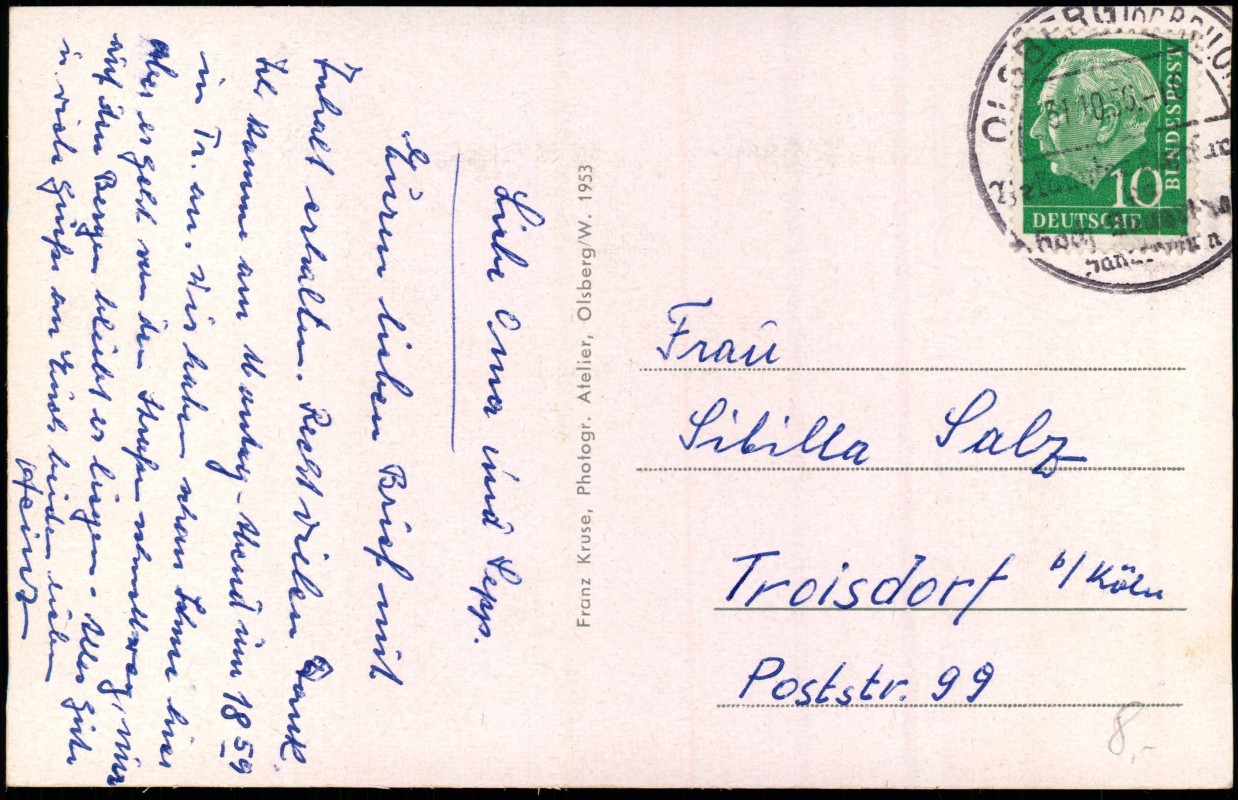 Liebe Oma und Sepp.
Euren lieben Brief mit
Inhalt erhalten. Recht vielen Dank.
Ich komme am Montag-Abend um 18 59
in Tr. an. Wir haben schon Schnee hier
aber es geht von den Straßen schnell weg, nur
auf den Bergen bleibt es liegen. Alles Gute
u. viele Grüße an Euch beiden
Heinz
Franz Kruse, Photogr. Atelier, Olsberg/W. 1953
OLSBERG
31.10.56.
10
DEUTSCHE
BUNDESPOST
Frau
Sibilla Salz
Troisdorf b/Köln
Poststr. 99
8,-